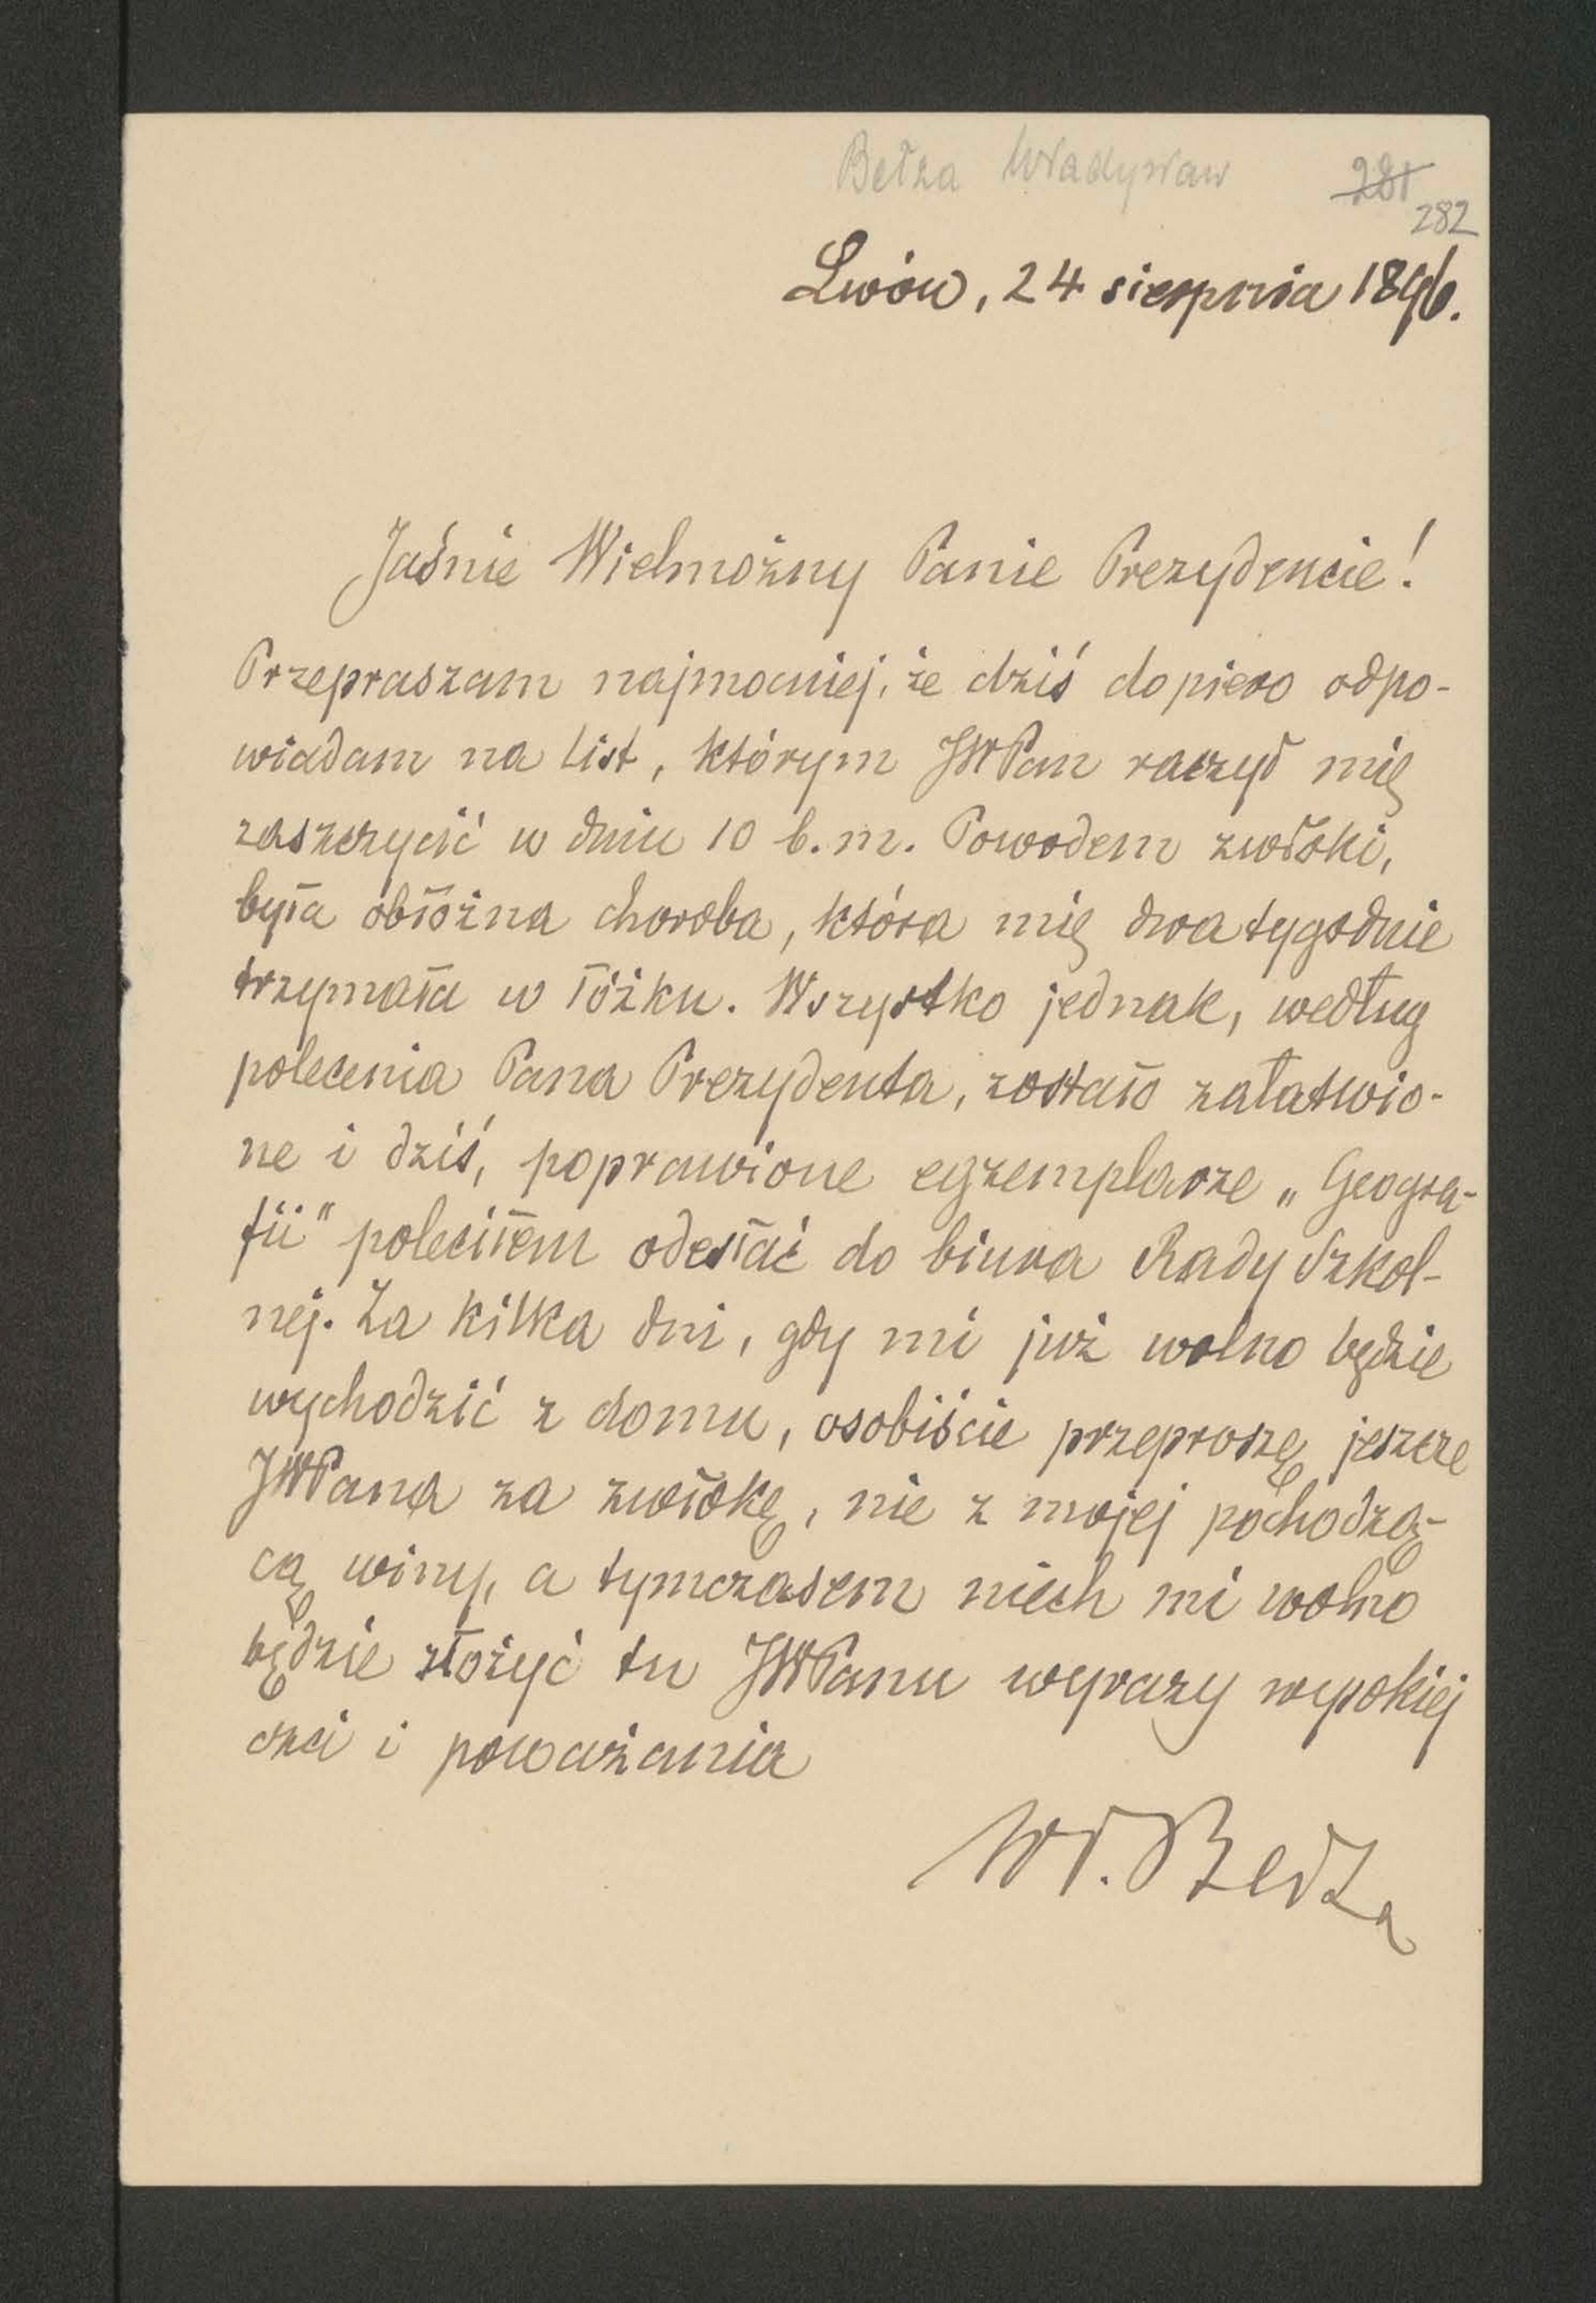 Bełza Władysław
281
282
Lwów, 24 sierpnia 1896.
Jaśnie Wielmożny Panie Prezydencie!
Przepraszam najmocniej, że dziś dopiero odpo-
wiadam na list, którym JWPan raczył mię
zaszczycić w dniu 10 b.m. Powodem zwłoki,
była obłożna choroba, która mię dwa tygodnie
trzymała w łóżku. Wszystko jednak, według
polecenia Pana Prezydenta, zostało załatwio-
ne i dziś, poprawione egzemplarze „Geogra-
fii" poleciłem odesłać do biura Rady Szkol-
nej. Za kilka dni, gdy mi już wolno będzie
wychodzić z domu, osobiście przeproszę jeszcze
JWPana za zwłokę, nie z mojej pochodzą-
cą winy, a tymczasem niech mi wolno
będzie złożyć tu JWPanu wyrazy wysokiej
czci i poważania
Wł. Bełza